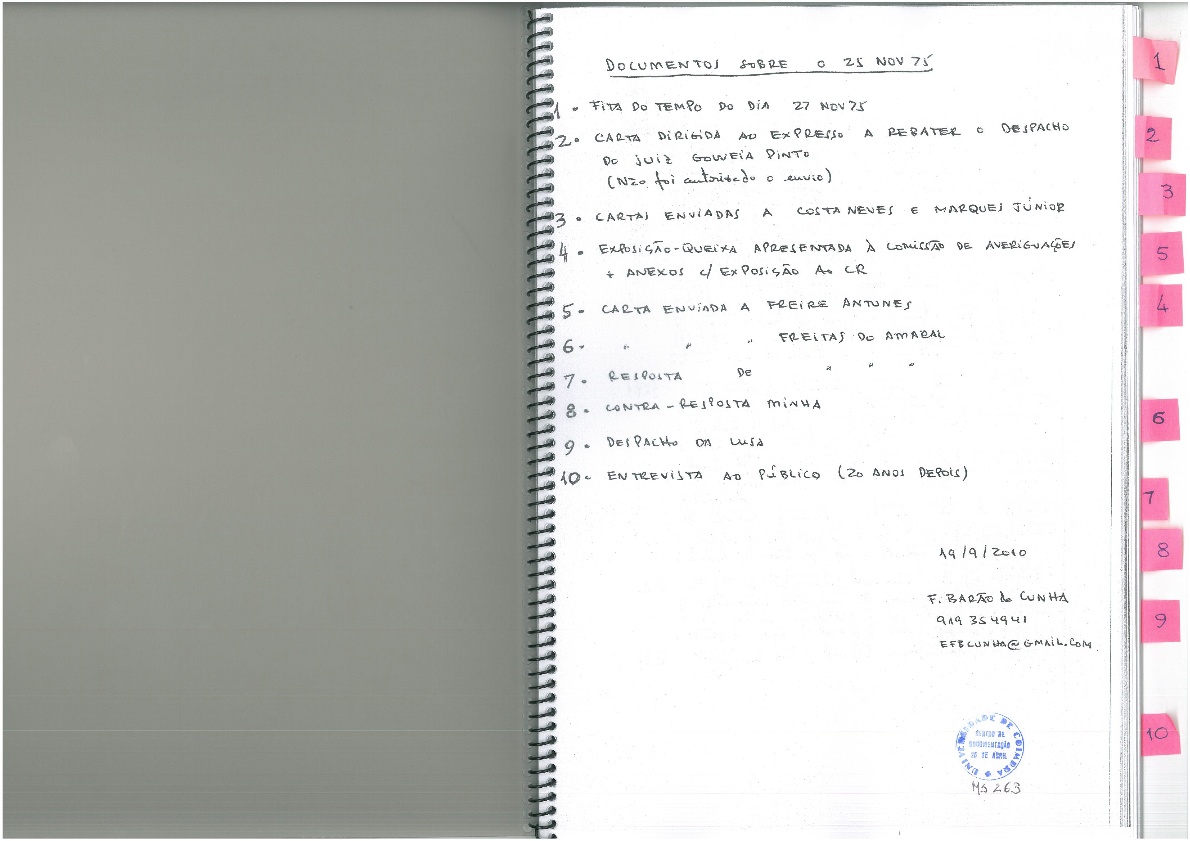 DOCUMENTOS SOBRE O 25 NOV 75
1 - FITA DO TEMPO DO DIA 27 NOV 75
2 - CARTA DIRIGIDA AO EXPRESSO A REBATER O DESPACHO
DO JUIZ GOUVEIA PINTO
(Não foi autorizado o envio)
3 - CARTAS ENVIADAS A COSTA NEVES E MARQUES JÚNIOR
4 - EXPOSIÇÃO-QUEIXA APRESENTADA À COMISSÃO DE AVERIGUAÇÕES
+ ANEXOS C/ EXPOSIÇÃO AO CR
5 - CARTA ENVIADA A FREIRE ANTUNES
6 - " " " FREITAS DO AMARAL
7 - RESPOSTA DE " " "
8 - CONTRA-RESPOSTA MINHA
9 - DESPACHO DA LUSA
10 - ENTREVISTA AO PÚBLICO (20 ANOS DEPOIS)
19/9/2010
F. BARÃO da CUNHA
919 354941
EFBCUNHA@GMAIL.COM
UNIVERSIDADE DE COIMBRA
CENTRO DE
DOCUMENTAÇÃO
25 DE ABRIL
MS 263
1
2
3
5
4
6
7
8
9
10